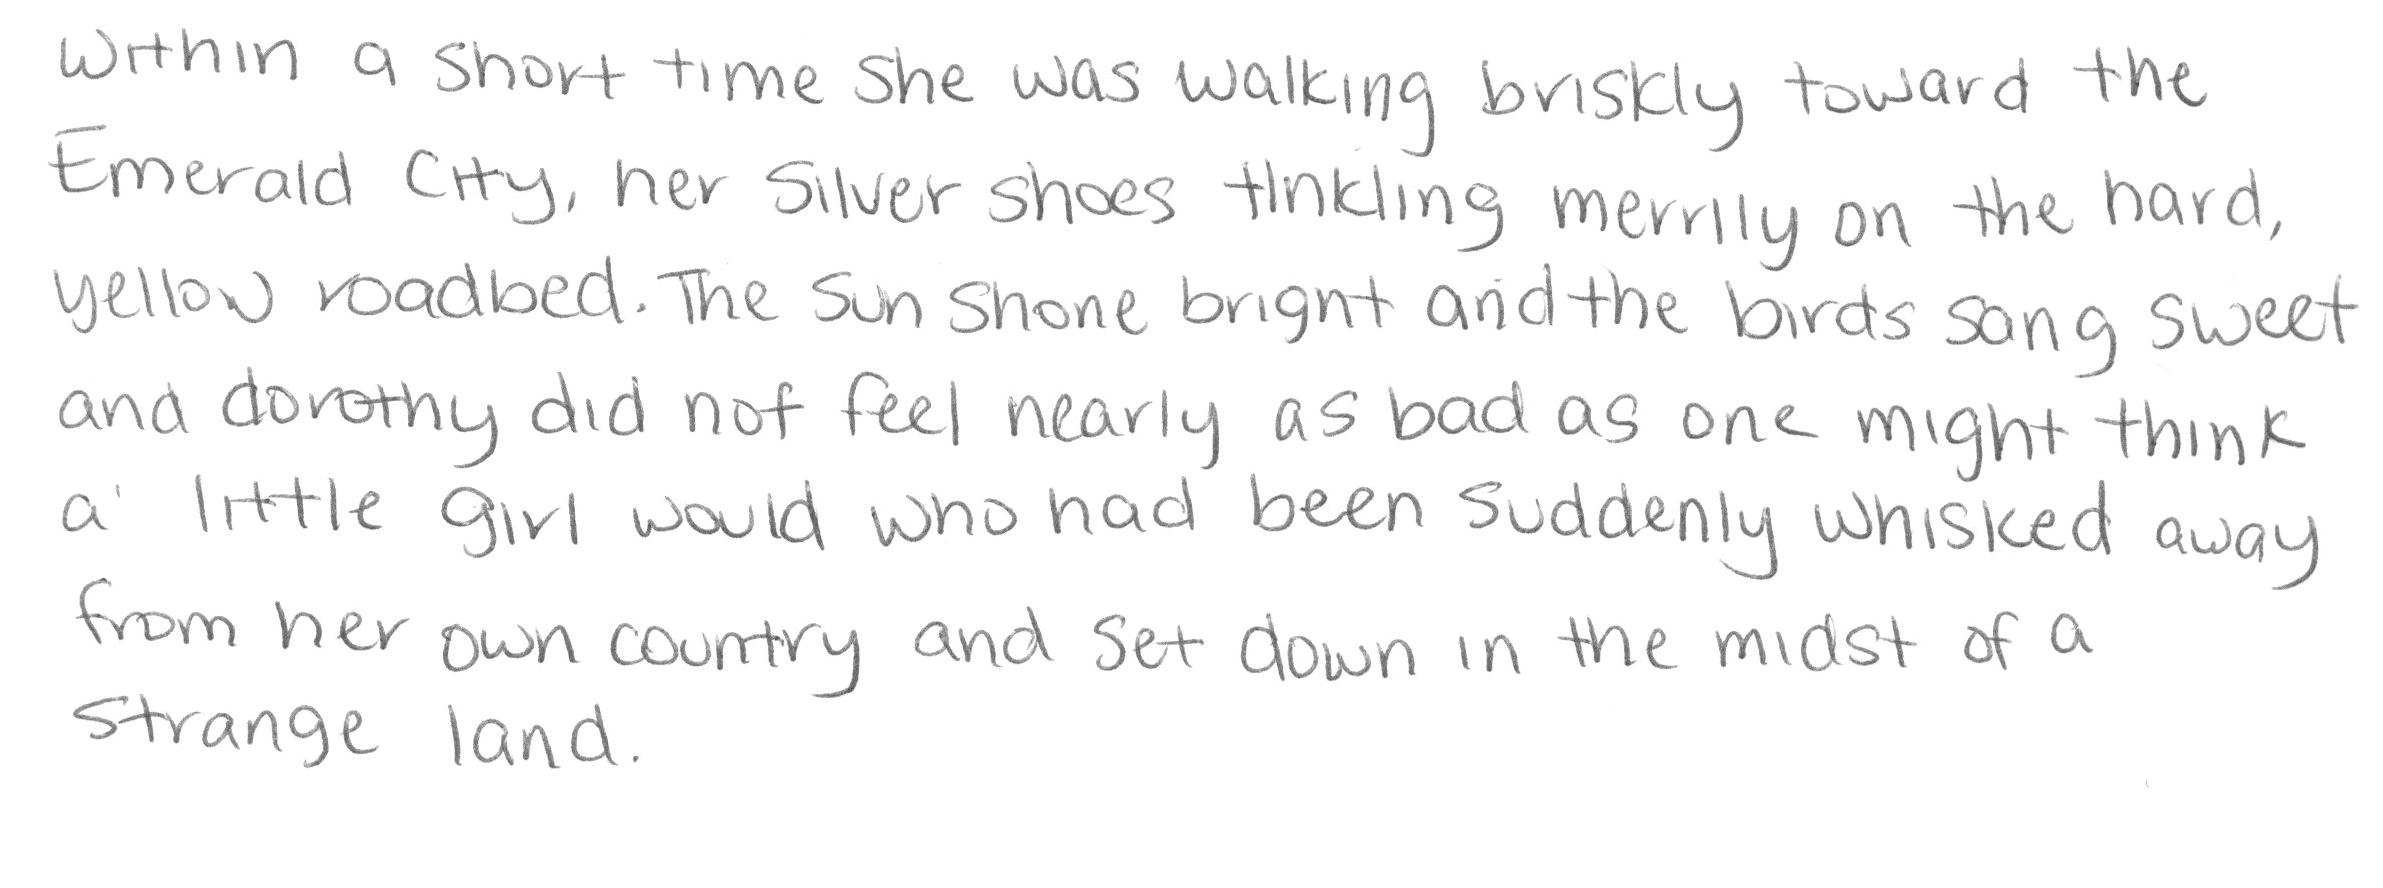 Within a short time she was walking briskly toward the
Emerald City, her Silver shoes tinkling merrily on the hard,
yellow roadbed. The sun shone bright and the birds sang sweet
and dorothy did not feel nearly as bad as one might think
a little girl would who had been suddenly whisked away
from her own country and set down in the midst of a
strange land.